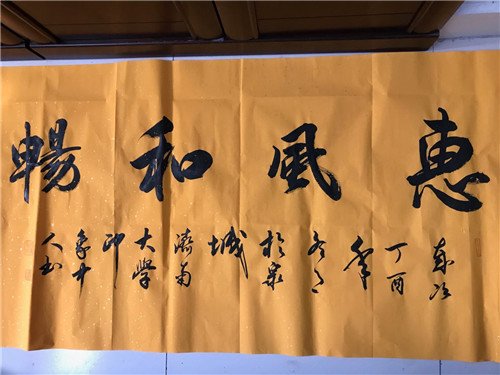 惠風和暢
歲次
丁酉
年
冬月
於泉
城
濟南
大學
印
象
人书